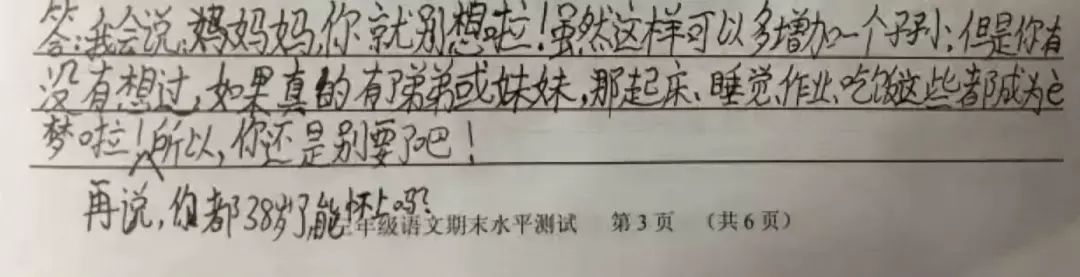 答:我会说:妈妈妈,你就别想啦!虽然这样可以多增加一个孑孓小,但是你有
没有想过,如果真的有了弟弟或妹妹,那起床、睡觉、作业、吃饭这些都成为è
梦啦!所以,你还是别要了吧!
再说,你都38岁了,能怀上吗?
三年级语文期末水平测试 第3页 (共6页)